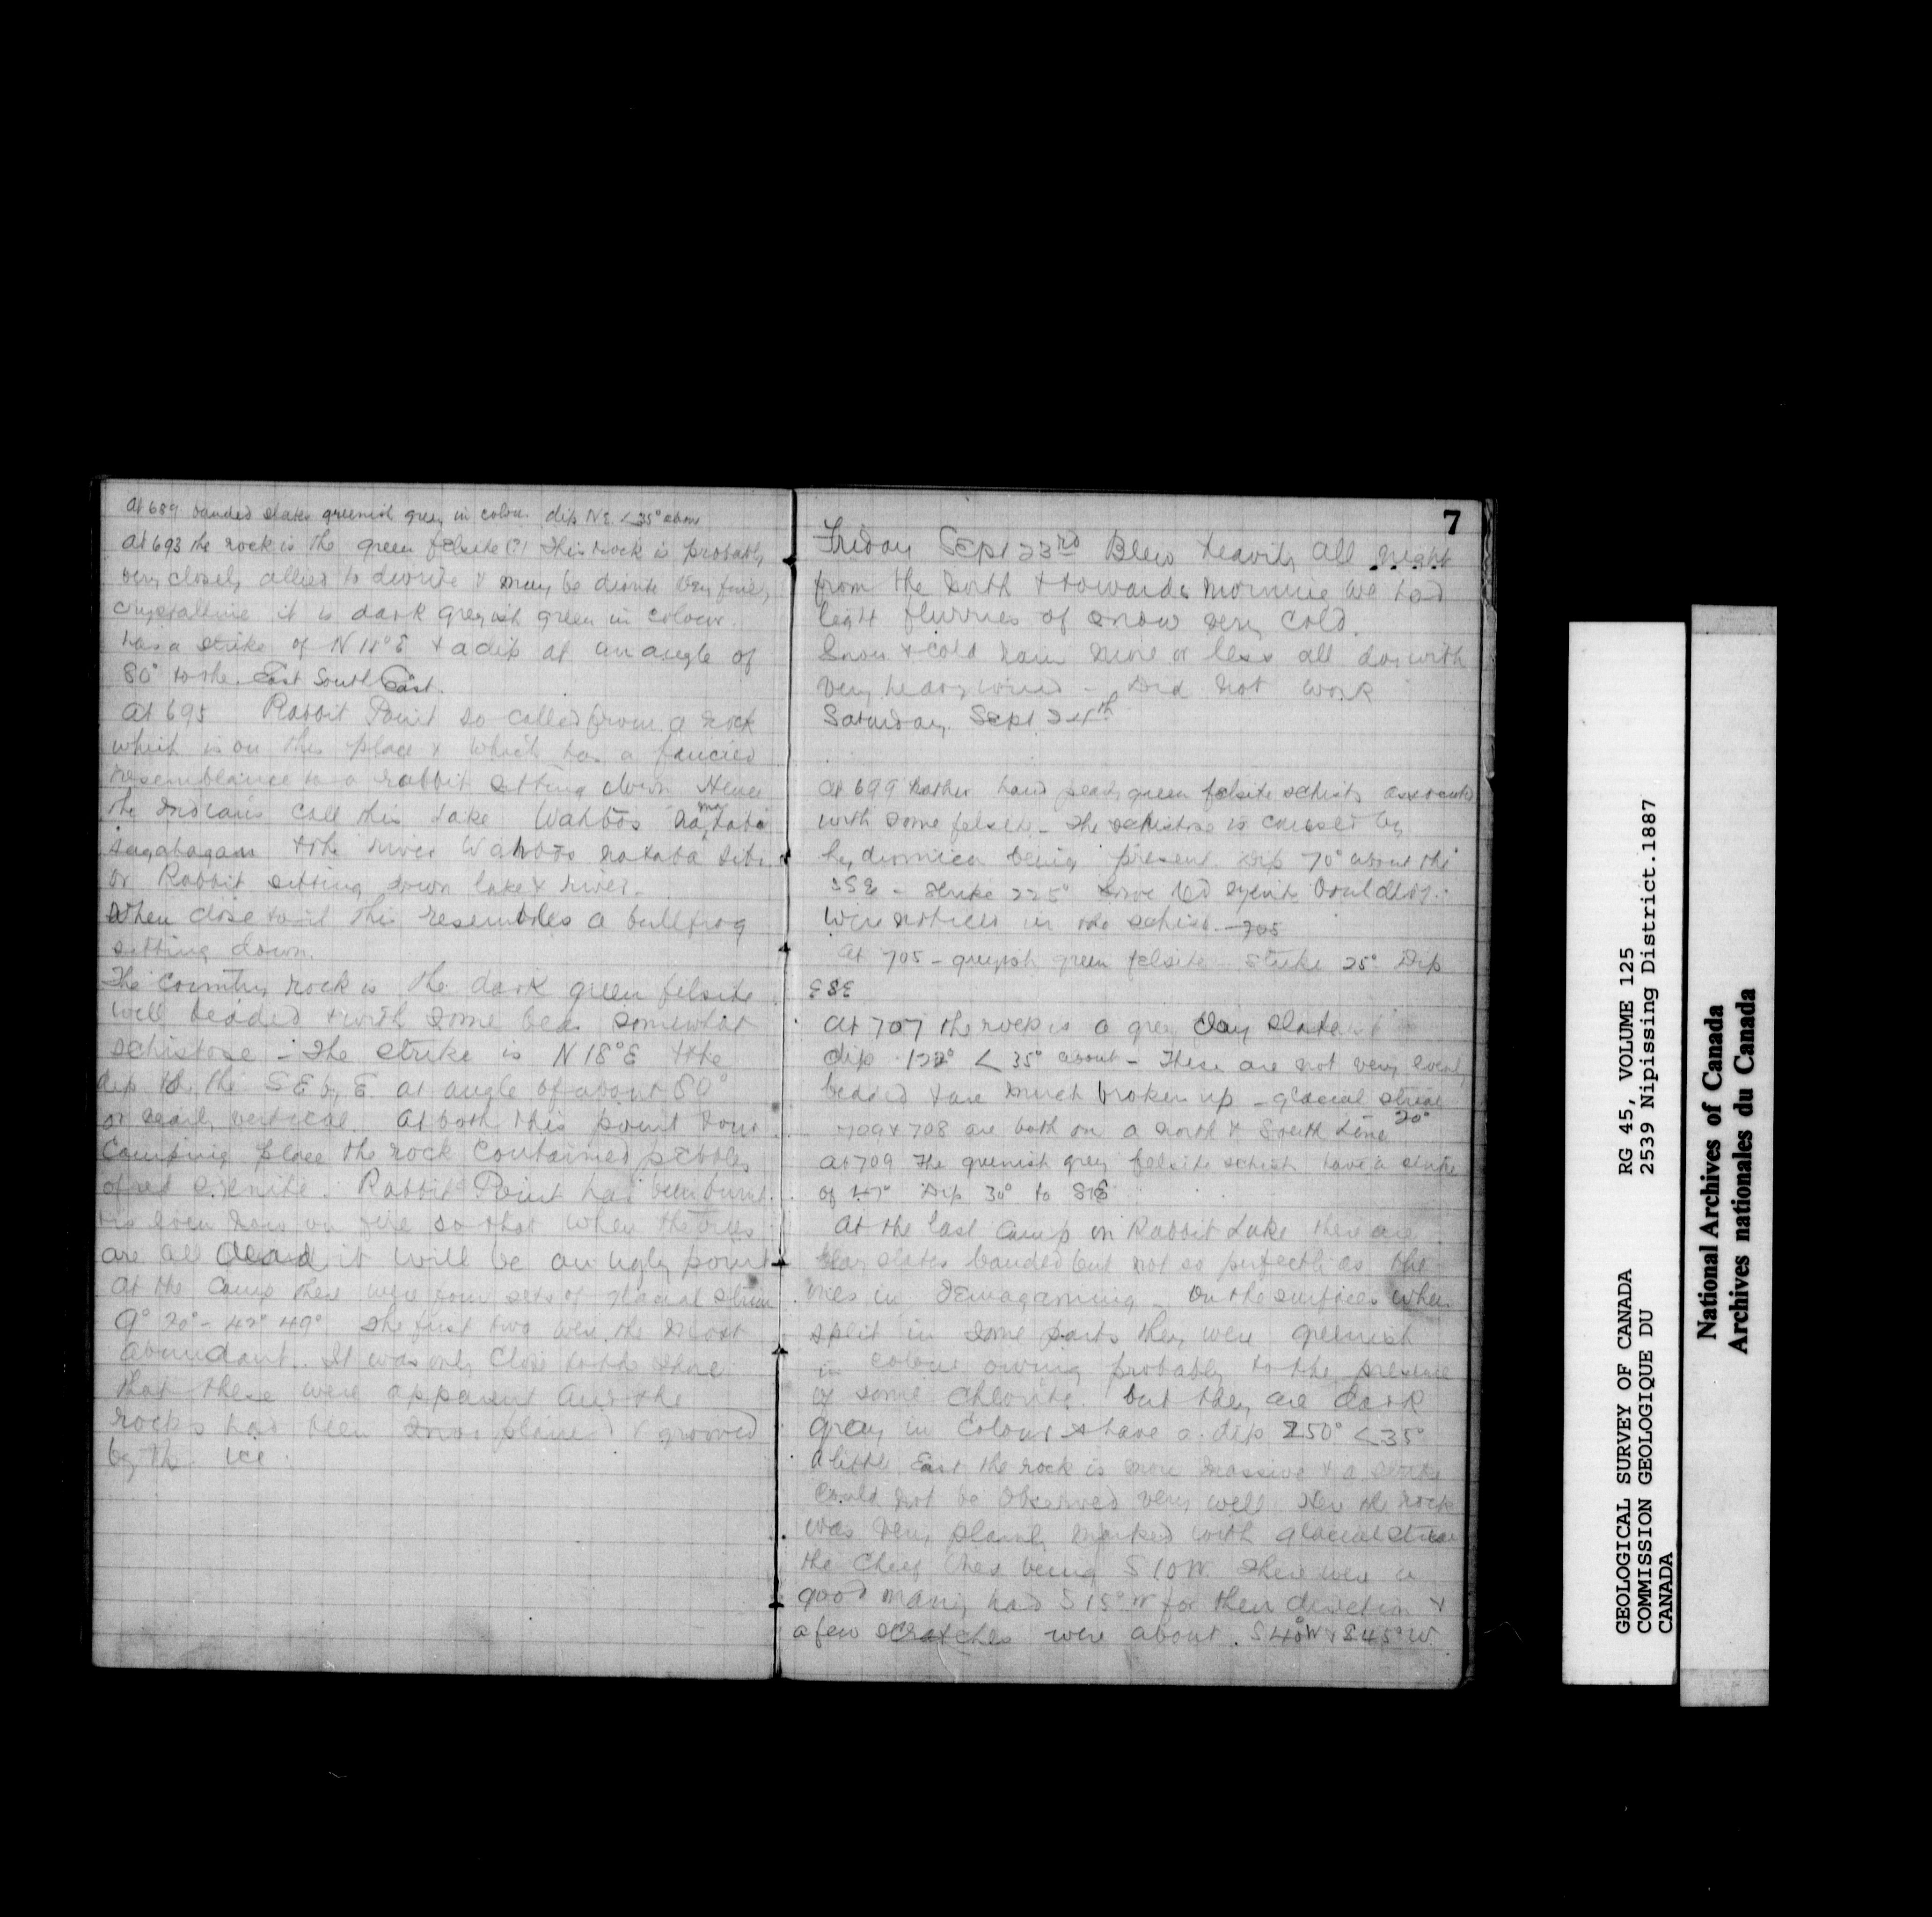 At 689 banded slates greenish grey in colour dip N.E. <35° about
At 693 the rock is the green felsite (?) This rock is probably
very closely allied to diorite & may be diorite very finely
crystalline it is dark greyish green in colour.
has a strike of N 18° E & a dip at an angle of
80° to the East South East.
At 695 Rabbit Point so called from a rock
which is on this place & which has a fancied
resemblance to a rabbit sitting down Hence
the Indians call this Lake Wahbōs
sagahagan & the river Wahbōs
or Rabbit sitting down lake & river.
When close to it this resembles a bullfrog
sitting down.
The country rock is the dark green felsite
well bedded & with some beds somewhat
schistose - The strike is N 18° E & the
dip to the S E by E. at angle of about 80°
or nearly vertical. At both this point & our
Camping place the rock contained pebbles
of red syenite. Rabbit Point has been burnt
& is even now on fire so that when the trees
are all dead it will be an ugly point
At the camp there were four sets of glacial striae
9° 20° - 42° 49° The first two were the most
abundant. It was only close to the shore
that these were apparent and the
rocks had been planed & grooved
by the ice
7
Friday Sept 23rd Blew heavily all night
from the north & towards morning we had
light flurries of snow very cold.
Snow & cold rain more or less all day with
very heavy wind - Did not work
Saturday Sept 24th
At 699 Rather hard green felsite schists associated
with some felsite - The schistose is caused by
hydromica being present. Dip 70° about the
SSE - Strike 225° Some red syenite boulders
were noticed in the schist - 705
At 705 - greyish green felsite - Strike 25° Dip
ESE
At 707 the rock is a grey Clay Slate
dip 122° < 35° about - These are not very evenly
bedded & are much broken up - glacial striae
709 & 708 are both on a north & South Line 20°
At 709 The greenish grey felsite schist have a strike
of 47° Dip 30° to SE
At the last Camp on Rabbit Lake there are
clay slates banded but not so perfectly as the
ones in Temagaming - On the surfaces when
split in some parts they were greenish
in colour owing probably to the presence
of some chlorite. but they are dark
grey in colour & have a dip 250° < 35°
A little East the rock is more massive & a strike
could not be observed very well. Here the rock
was very plainly marked with glacial striae
the chief ones being S 10 W. There were a
good many had S 15° W for their direction &
a few scratches were about S 40° W & S 45° W.
GEOLOGICAL SURVEY OF CANADA RG 45, VOLUME 125
COMMISSION GEOLOGIQUE DU 2539 Nipissing District.1887
CANADA
National Archives of Canada
Archives nationales du Canada